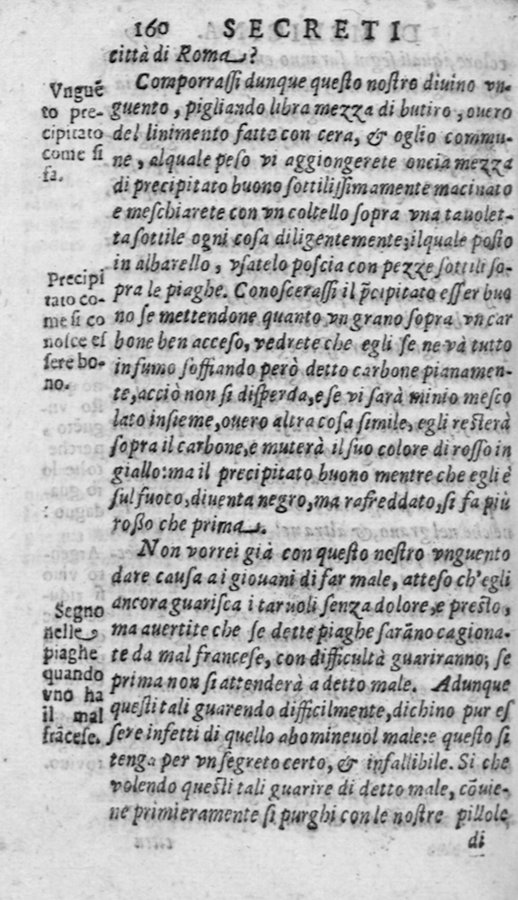 160 SECRETI
città di Roma?
Comporrassi dunque questo nostro diuino vn-
guento, pigliando libra mezza di butiro, ouero
del linimento fatto con cera, & oglio commu-
ne, alquale peso vi aggiongerete oncia mezza
di precipitato buono sottilissimamente macinato
e meschiarete con vn coltello sopra vna tauolet-
ta sottile ogni cosa diligentemente; ilquale posto
in albarello, vsatelo poscia con pezze sottili so-
pra le piaghe. Conoscerassi il p̃cipitato esser buo
no se mettendone quanto vn grano sopra vn car
bone ben acceso, vedrete che egli se ne và tutto
in fumo soffiando però detto carbone pianamen-
te, acciò non si disperda, e se vi sarà minio mesco
lato insieme, ouero altra cosa simile, egli resterà
sopra il carbone, e muterà il suo colore di rosso in
giallo: ma il precipitato buono mentre che egli è
sul fuoco, diuenta negro, ma rafreddato, si fa più
rosso che prima.
Non vorrei già con questo nostro vnguento
dare causa a i giouani di far male, atteso ch'egli
ancora guarisca i taruoli senza dolore, e presto,
ma auertite che se dette piaghe sarãno cagiona-
te da mal francese, con difficultà guariranno; se
prima non si attenderà a detto male. Adunque
questi tali guarendo difficilmente, dichino pur es
sere infetti di quello abomineuol male: e questo si
tenga per vn segreto certo, & infallibile. Si che
volendo questi tali guarire di detto male, cõuie-
ne primieramente si purghi con le nostre pillole
di
Vnguẽ
to pre-
cipitato
come si
fa.
Precipi
tato co-
me si co
nosce es
sere bo-
no.
Segno
nelle
piaghe
quando
vno ha
il mal
frãcese.